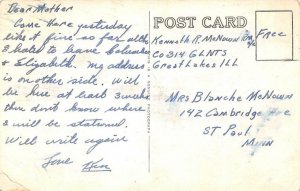 Dear Mother
Came here yesterday
like it fine so far altho
I hated to leave Columbus
& Elizabeth. My address
is on other side. Will
be here at least 3 weeks
then don't know where
I will be stationed.
Will write again
Love Ken
POST CARD
Kenneth R McNown
Co 314 GLNTS
Great Lakes Ill
Free
Mrs Blanche McNown
142 Cambridge Ave
St Paul
Minn